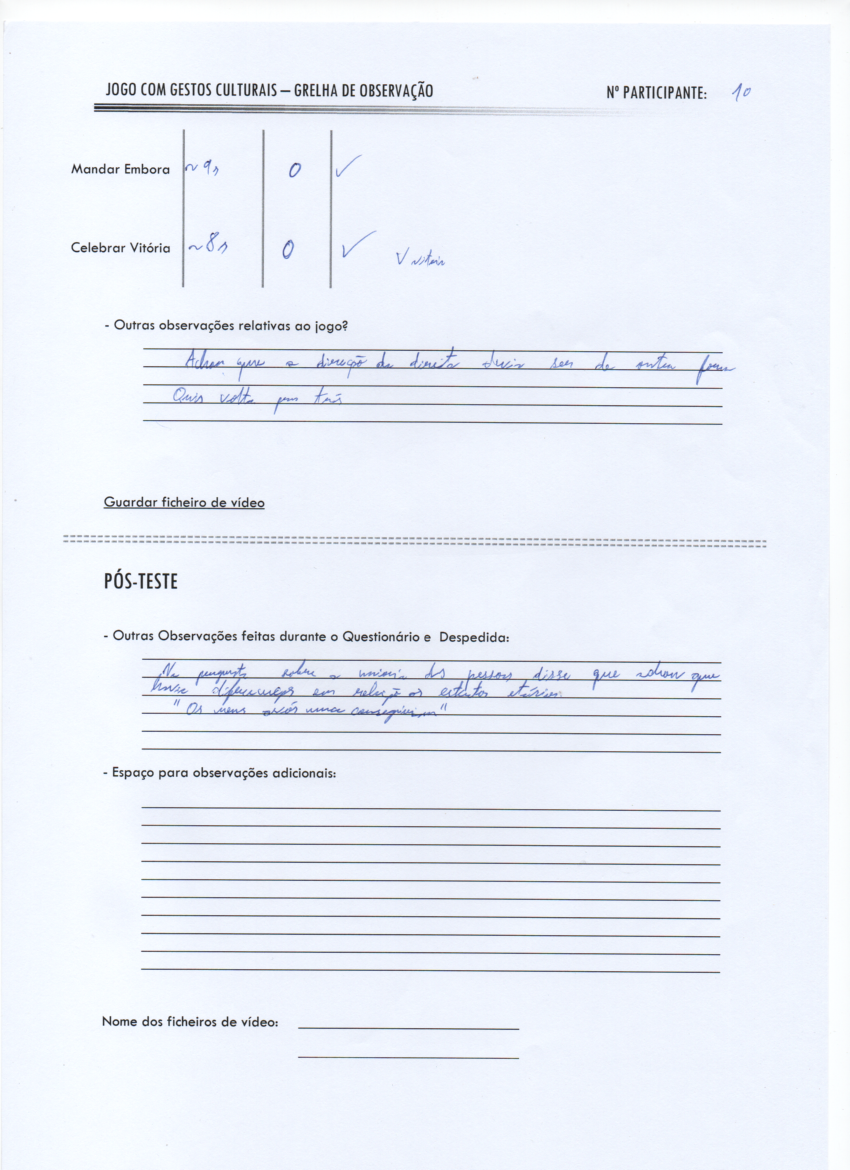 JOGO COM GESTOS CULTURAIS – GRELHA DE OBSERVAÇÃO Nº PARTICIPANTE: 10
Mandar Embora ~9s 0 ✓
Celebrar Vitória ~8s 0 ✓ V
- Outras observações relativas ao jogo?
Achou que a direção da direita devia ser de outra forma
Quis volta para trás
Guardar ficheiro de vídeo
PÓS-TESTE
- Outras Observações feitas durante o Questionário e Despedida:
Na pergunta sobre a maioria das pessoas disse que achou que
havia diferenças em relação os estratos etários
" Os meus avós nunca conseguiriam"
- Espaço para observações adicionais:
Nome dos ficheiros de vídeo: